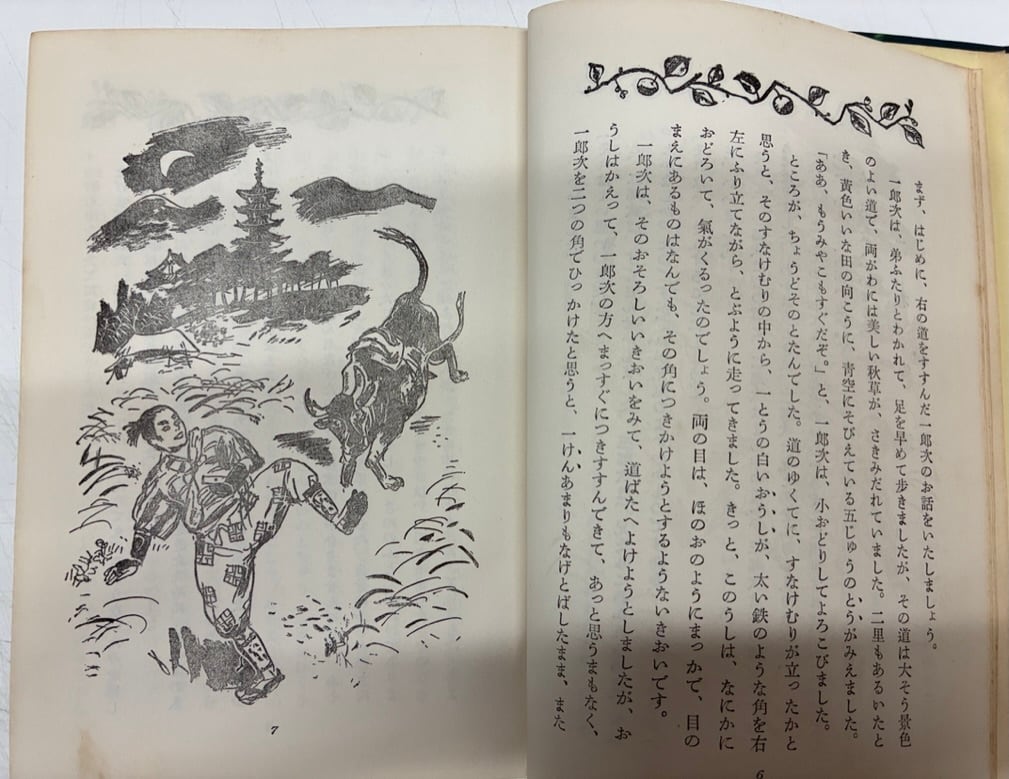 まず、はじめに、右の道をすすんだ一郎次のお話をいたしましょう。
一郎次は、弟ふたりとわかれて、足を早めて歩きましたが、その道は大そう景色
のよい道で、両がわには美しい秋草が、さきみだれていました。二里もあるいたと
き、黄色いいな田の向こうに、青空にそびえている五じゅうのとうがみえました。
「ああ、もうみやこもすぐだぞ。」と、一郎次は、小おどりしてよろこびました。
ところが、ちょうどそのとたんでした。道のゆくてに、すなけむりが立ったかと
思うと、そのすなけむりの中から、一とうの白いおうしが、太い鉄のような角を右
左にふり立てながら、とぶように走ってきました。きっと、このうしは、なにかに
おどろいて、氣がくるったのでしょう。両の目は、ほのおのようにまっかで、目の
まえにあるものはなんでも、その角につきかけようとするようないきおいです。
一郎次は、そのおそろしいいきおいをみて、道ばたへよけようとしましたが、お
うしはかえって、一郎次の方へまっすぐにつきすすんできて、あっと思うまもなく、
一郎次を二つの角でひっかけたと思うと、一けんあまりもなげとばしたまま、また
6
7